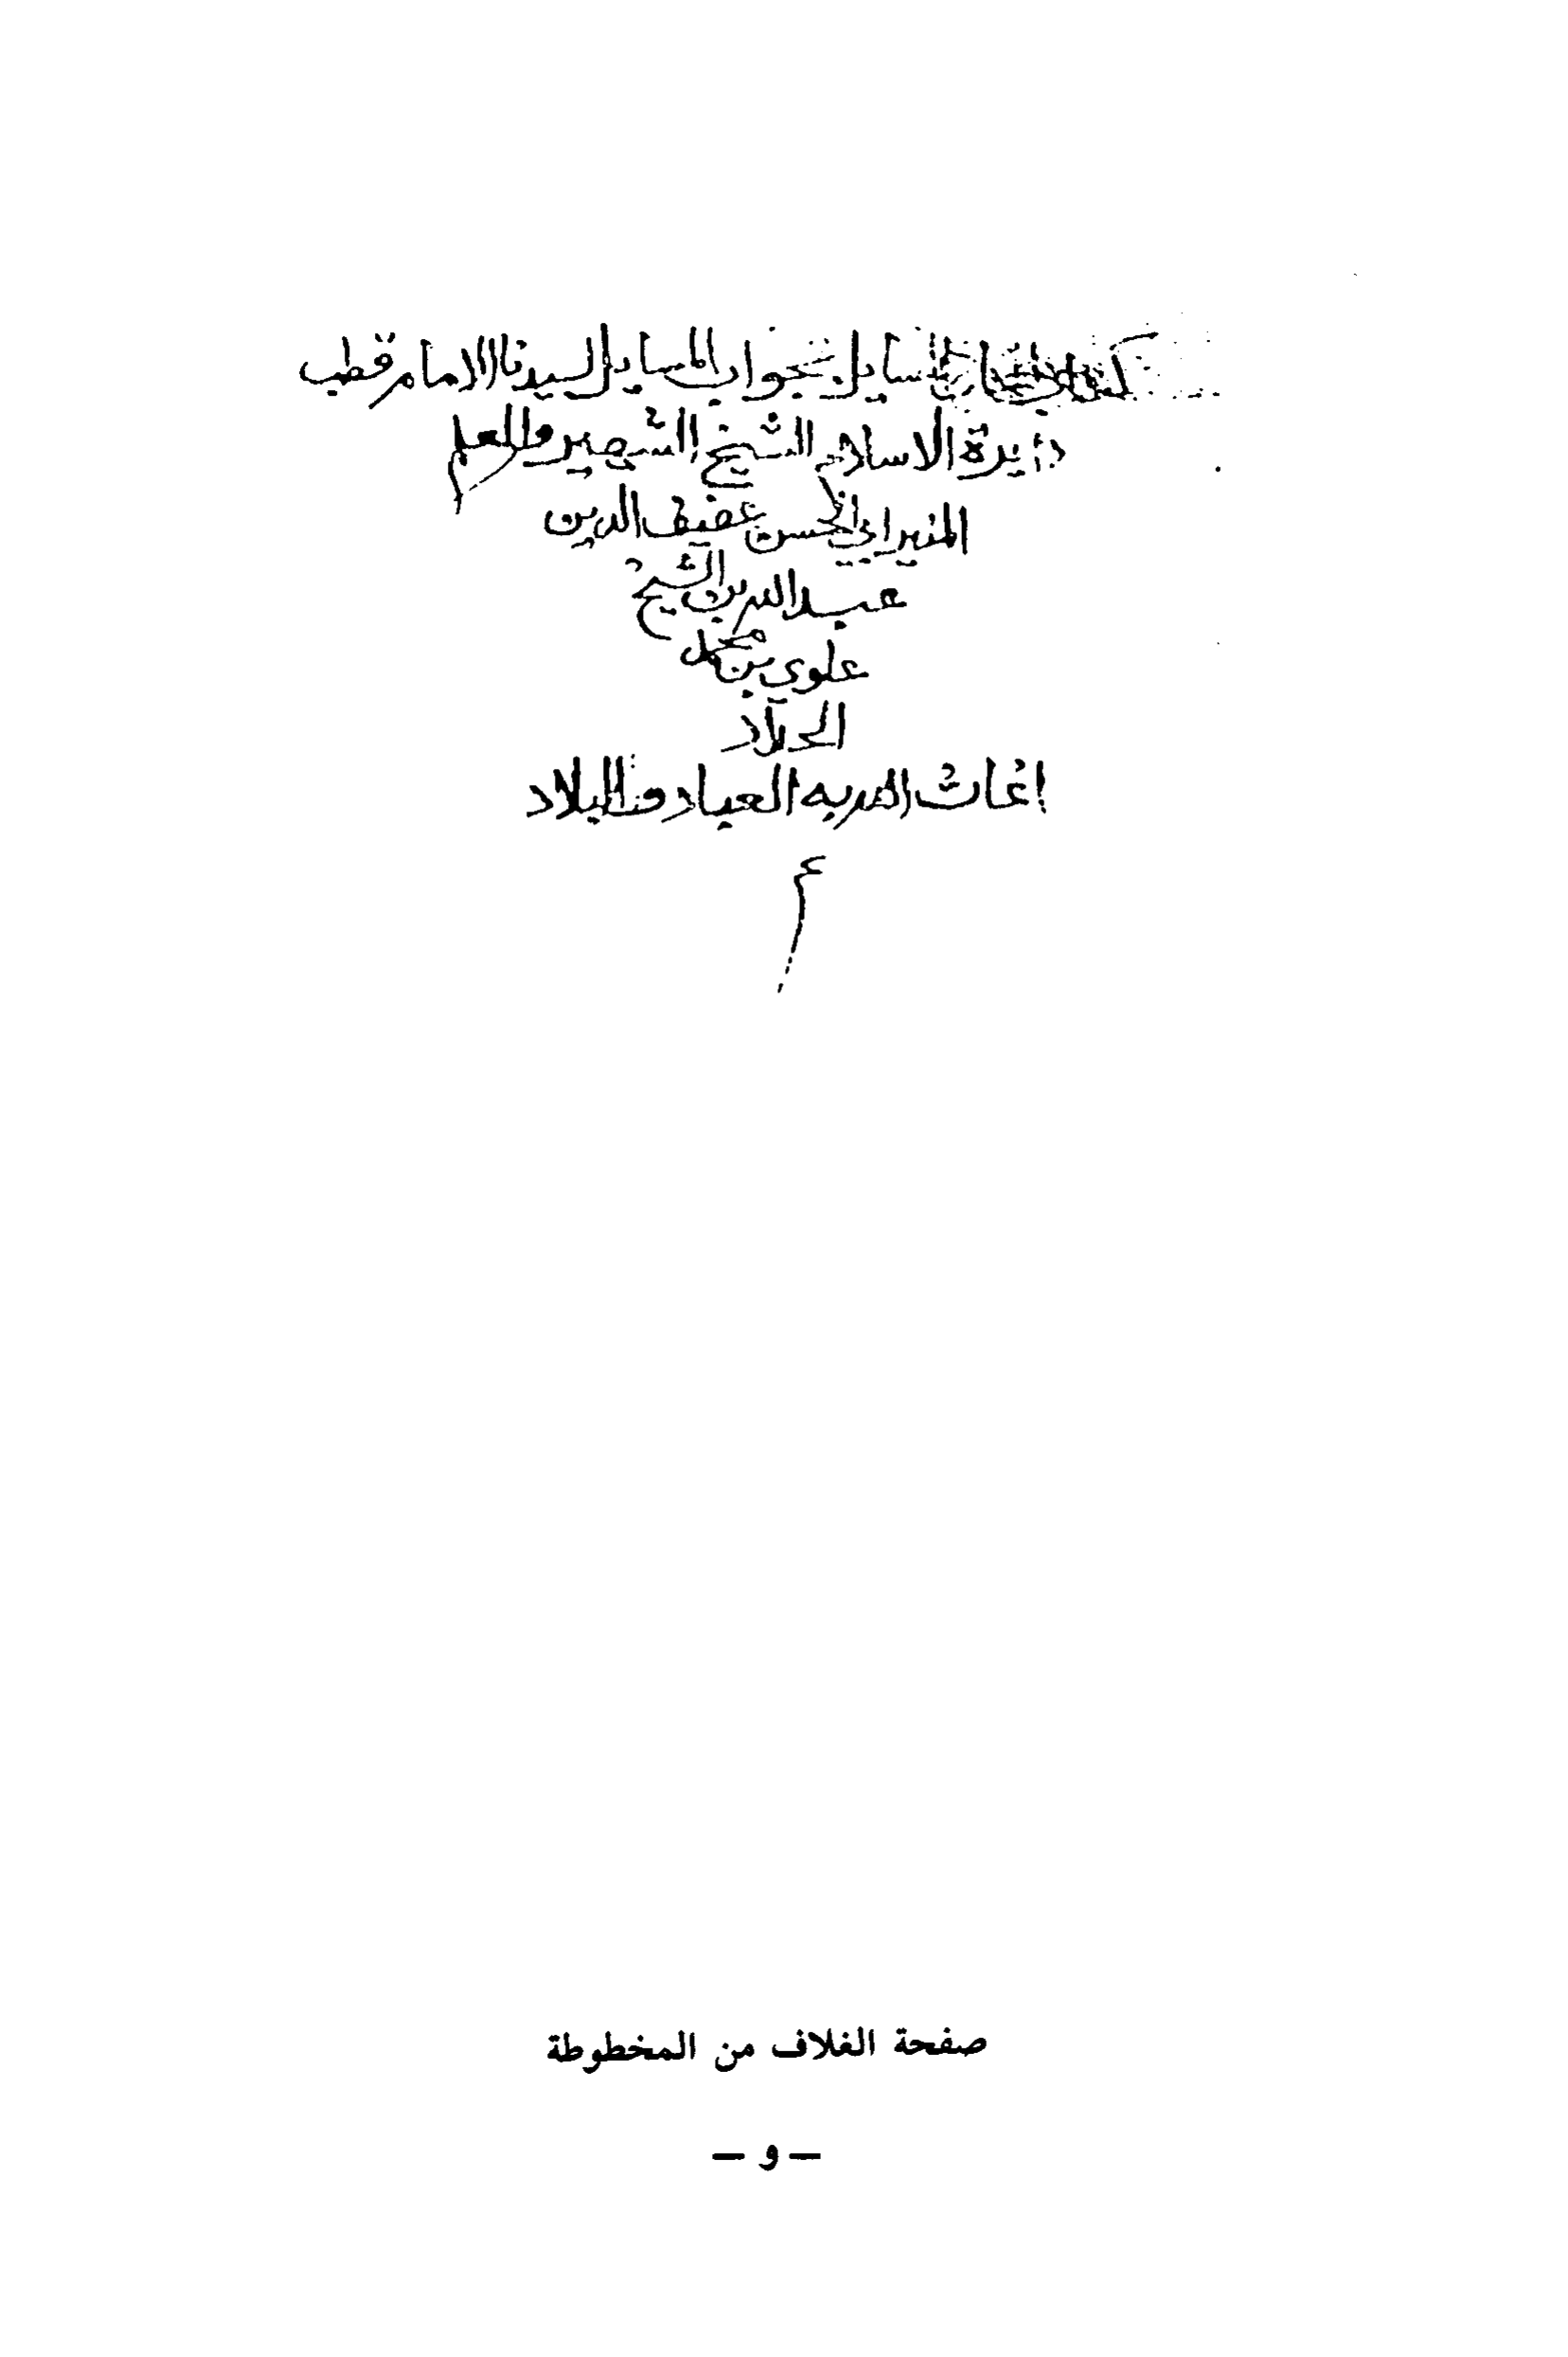 كتاب اتحاف السايل بجواب المسايل لسيدنا الامام قطب
دايرة الاسلام الشيخ الشهير والعلم
المنير ابي الحسن عفيف الدين
عبد الله بن الشيخ
علوي بن محمد
الحداد
اغاث الله به العباد والبلاد
صفحة الغلاف من المخطوطة
– و –